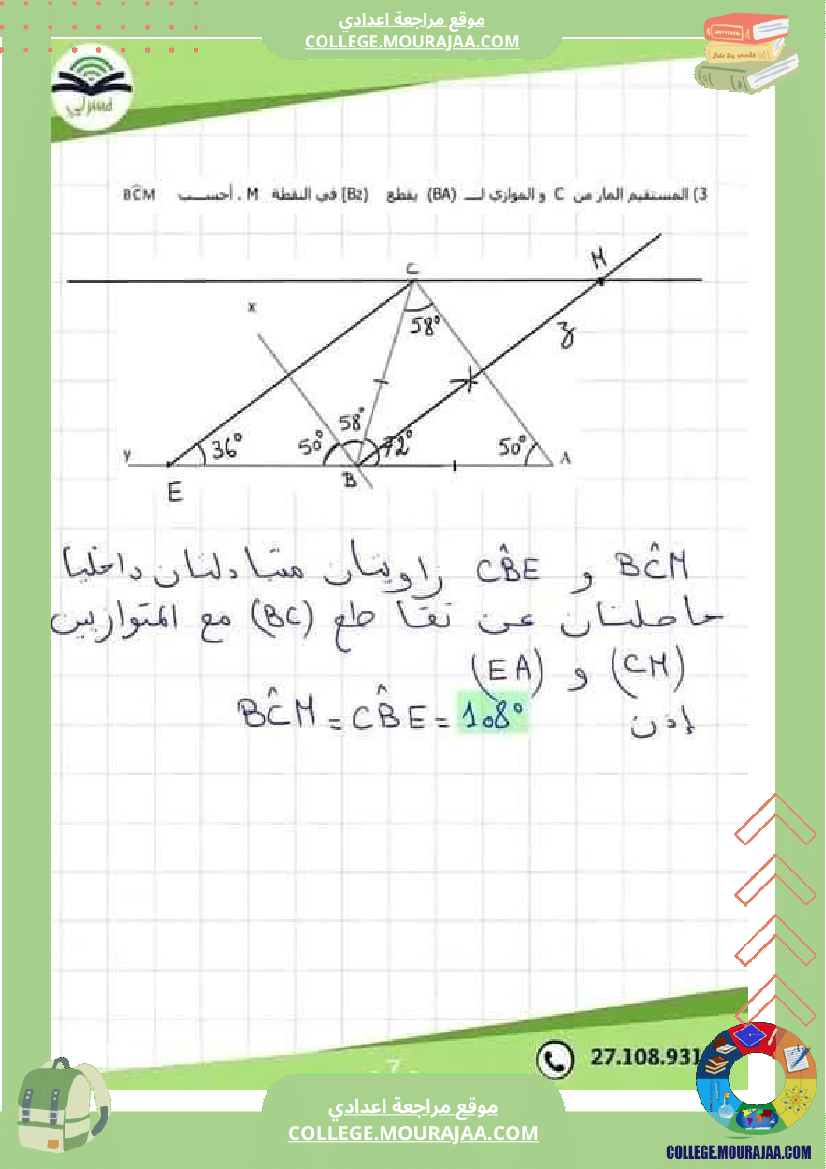 موقع مراجعة اعدادي
COLLEGE.MOURAJAA.COM
فسرلي
3) المستقيم المار من C و الموازي لـــ (BA) يقطع [Bz) في النقطة M . أحســـب BĈM
C
M
x
58°
z
58°
y
36°
50°
72°
50°
A
B
E
BĈM و CB̂E زاويتان متبادلتان داخليا
حاصلتان عن تقاطع (BC) مع المتوازيين
(CM) و (EA)
إذن BĈM = CB̂E = 108°
7
27.108.931
موقع مراجعة اعدادي
COLLEGE.MOURAJAA.COM
COLLEGE.MOURAJAA.COM